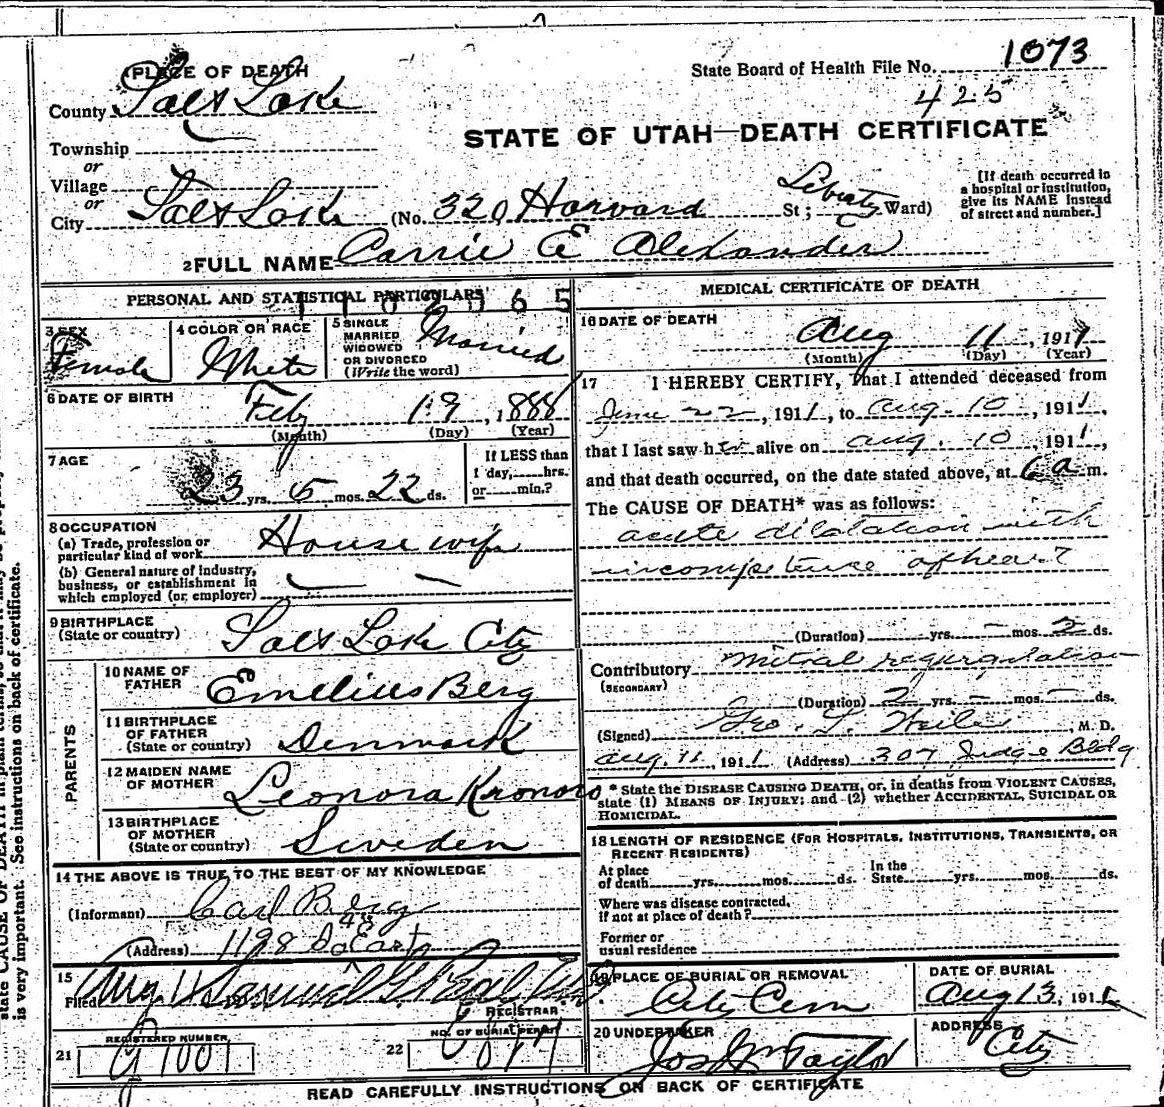 PLACE OF DEATH
State Board of Health File No. 1073
County Salt Lake
425
STATE OF UTAH—DEATH CERTIFICATE
Township
or
Village
or
City Salt Lake (No. 320 Harvard St; Liberty Ward)
[If death occurred in
a hospital or institution,
give its NAME instead
of street and number.]
2 FULL NAME Carrie E Alexander
PERSONAL AND STATISTICAL PARTICULARS
3 SEX Female
4 COLOR OR RACE White
5 SINGLE
MARRIED
WIDOWED
OR DIVORCED
(Write the word) Married
6 DATE OF BIRTH Feby 19, 1888
(Month) (Day) (Year)
7 AGE 23 yrs. 5 mos. 22 ds.
If LESS than
1 day, hrs.
or min.?
8 OCCUPATION
(a) Trade, profession or
particular kind of work House wife
(b) General nature of industry,
business, or establishment in
which employed (or employer)
9 BIRTHPLACE
(State or country) Salt Lake City
PARENTS
10 NAME OF
FATHER Emelius Berg
11 BIRTHPLACE
OF FATHER
(State or country) Denmark
12 MAIDEN NAME
OF MOTHER Leonora
13 BIRTHPLACE
OF MOTHER
(State or country) Sweden
14 THE ABOVE IS TRUE TO THE BEST OF MY KNOWLEDGE
(Informant) Carl Berg
(Address) 1198 East
15
Filed Aug
REGISTRAR
REGISTERED NUMBER
21
NO. OF BURIAL PERMIT
22
MEDICAL CERTIFICATE OF DEATH
16 DATE OF DEATH Aug 11, 1911
(Month) (Day) (Year)
17 I HEREBY CERTIFY, That I attended deceased from
June 22, 1911, to Aug. 10, 1911,
that I last saw her alive on Aug. 10, 1911,
and that death occurred, on the date stated above, at 6 a m.
The CAUSE OF DEATH* was as follows:
acute dilatation with
incompetence of heart
(Duration) yrs. – mos. 2 ds.
Contributory mitral regurgitation
(SECONDARY)
(Duration) 2 yrs. – mos. – ds.
(Signed) Geo. , M.D.
Aug. 11, 1911 (Address) 307 Judge Bldg
* State the DISEASE CAUSING DEATH, or, in deaths from VIOLENT CAUSES,
state (1) MEANS OF INJURY; and (2) whether ACCIDENTAL, SUICIDAL OR
HOMICIDAL.
18 LENGTH OF RESIDENCE (FOR HOSPITALS, INSTITUTIONS, TRANSIENTS, OR
RECENT RESIDENTS)
At place
of death yrs. mos. ds.
In the
State yrs. mos. ds.
Where was disease contracted,
if not at place of death?
Former or
usual residence
19 PLACE OF BURIAL OR REMOVAL
City Cem
DATE OF BURIAL
Aug 13, 1911
20 UNDERTAKER
Jos Wm Taylor
ADDRESS
City
READ CAREFULLY INSTRUCTIONS ON BACK OF CERTIFICATE
is very important. See instructions on back of certificate.